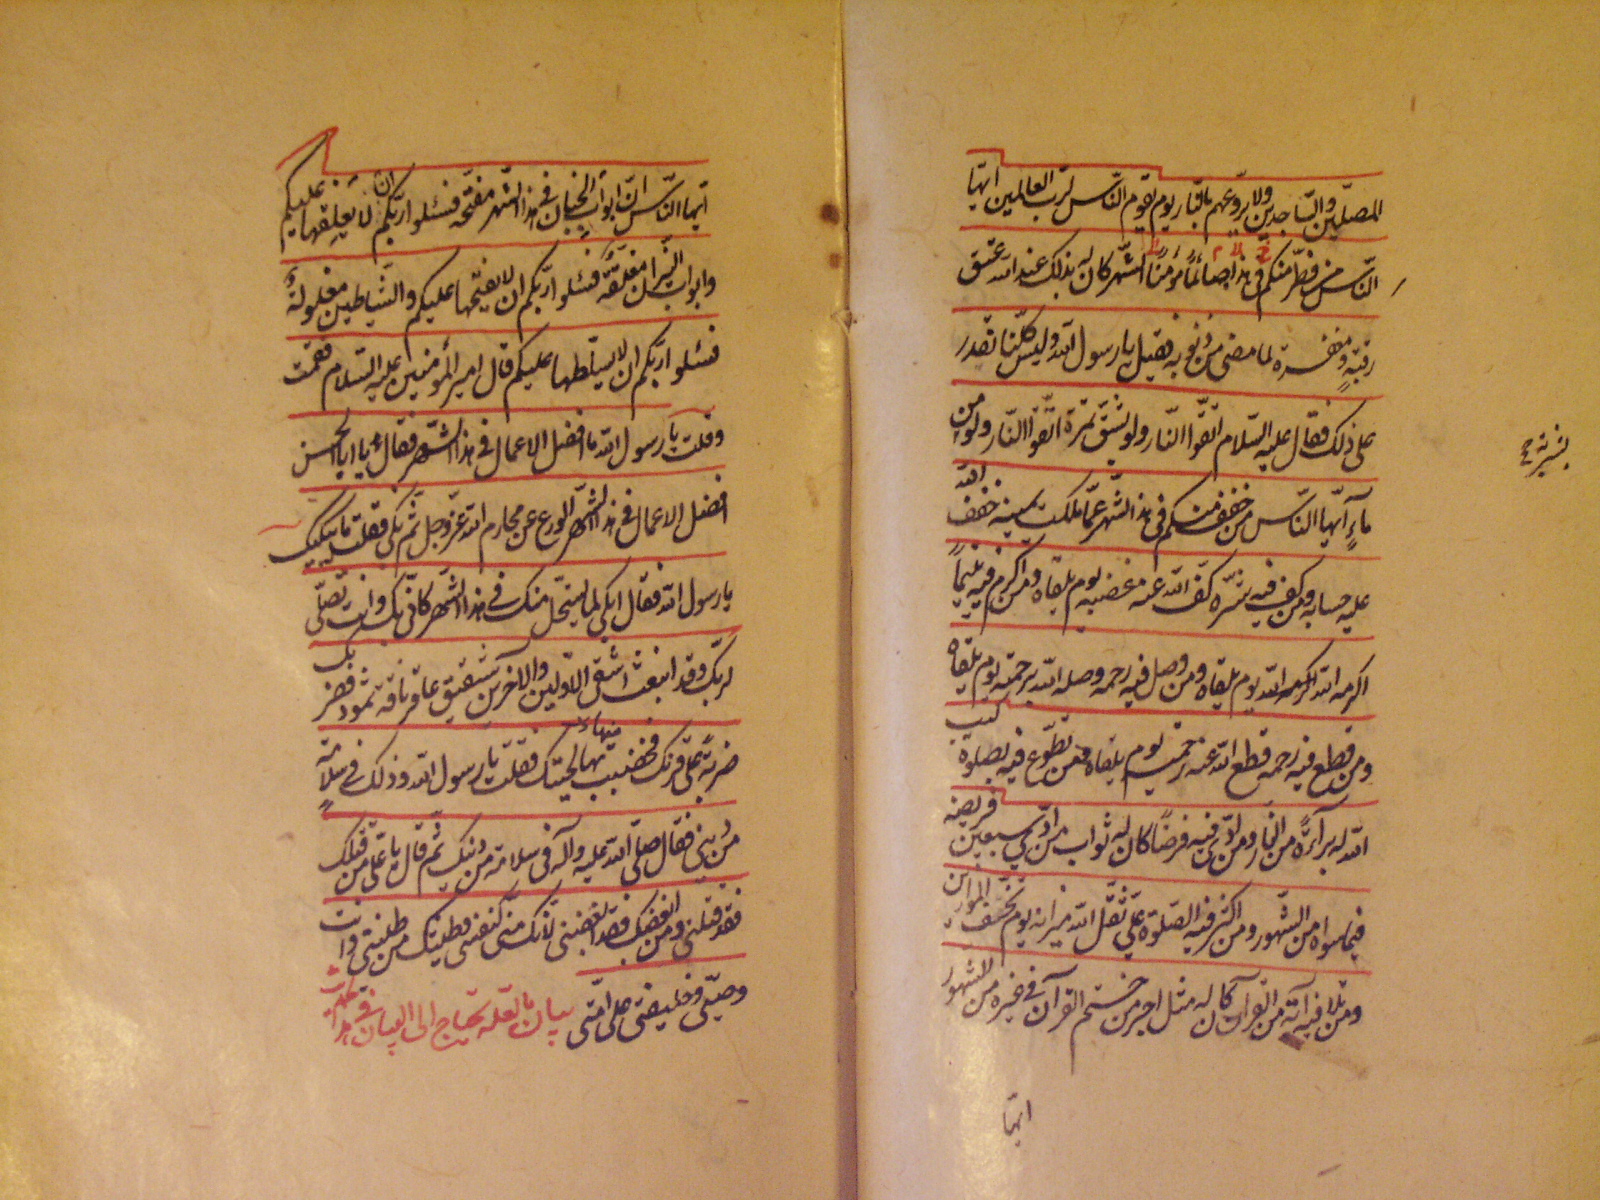 المصلّين والسّاجدين ولا يروّعهم بالنّار يوم يقوم النّاس لربّ العالمين ايّها
النّاس من فطّر منكم صائماً مؤمناً في هذا الشّهر كان له بذلك عند الله عتق
رقبة ومغفرة لما مضى من ذنوبه فقيل يا رسول الله وليس كلّنا نقدر
على ذلك فقال عليه السّلام اتّقوا النّار ولو بشقّ تمرة اتّقوا النّار ولو بشربة من
ماءٍ ايّها النّاس من خفّف منكم في هذا الشّهر عمّا ملكت يمينه خفّف الله
عليه حسابه ومن كفّ فيه شرّه كفّ الله عنه غضبه يوم يلقاه ومن اكرم فيه يتيماً
اكرمه الله يوم يلقاه ومن وصل فيه رحمه وصله الله برحمته يوم يلقاه
ومن قطع فيه رحمه قطع الله عنه رحمته يوم يلقاه ومن تطوّع فيه بصلوة كتب
الله له براءة من النّار ومن ادّى فيه فرضاً كان له ثواب من ادّى سبعين فريضة
فيما سواه من الشّهور ومن اكثر فيه الصّلوة علىّ ثقّل الله ميزانه يوم تخفّف الموازين
ومن تلا فيه آية من القرآن كان له مثل اجر من ختم القرآن في غيره من الشهور
ايّها
ايّها النّاس انّ ابواب الجنان في هذا الشّهر مفتّحة فسئلوا ربّكم ان لا يغلقها عليكم
وابواب النّيران مغلقة فسئلوا ربّكم ان لا يفتحها عليكم والشّياطين مغلولة
فسئلوا ربّكم ان لا يسلّطها عليكم قال امير المؤمنين عليه السّلام فقمت
وقلت يا رسول الله ما افضل الاعمال في هذا الشّهر فقال يا ابا الحسن
افضل الاعمال في هذا الشّهر الورع عن محارم الله عزّ وجلّ ثمّ بكى فقلت ما يبكيك
يا رسول الله فقال ابكى لما يستحلّ منك في هذا الشّهر كانّى بك وانت تصلّى
لربّك وقد انبعث اشقى الاوّلين والآخرين شقيق عاقر ناقة ثمود فضربك
ضربة على قرنك فخضب منها لحيتك فقلت يا رسول الله وذلك في سلامة
من دينى فقال صلّى الله عليه وآله في سلامة من دينك ثمّ قال يا على من قتلك
فقد قتلنى ومن ابغضك فقد ابغضنى لانّك منّى كنفسى وطينتك من طينتى وانت
وصيّى وخليفتى على امّتى بيان ما لعلّه يحتاج الى البيان في هذا